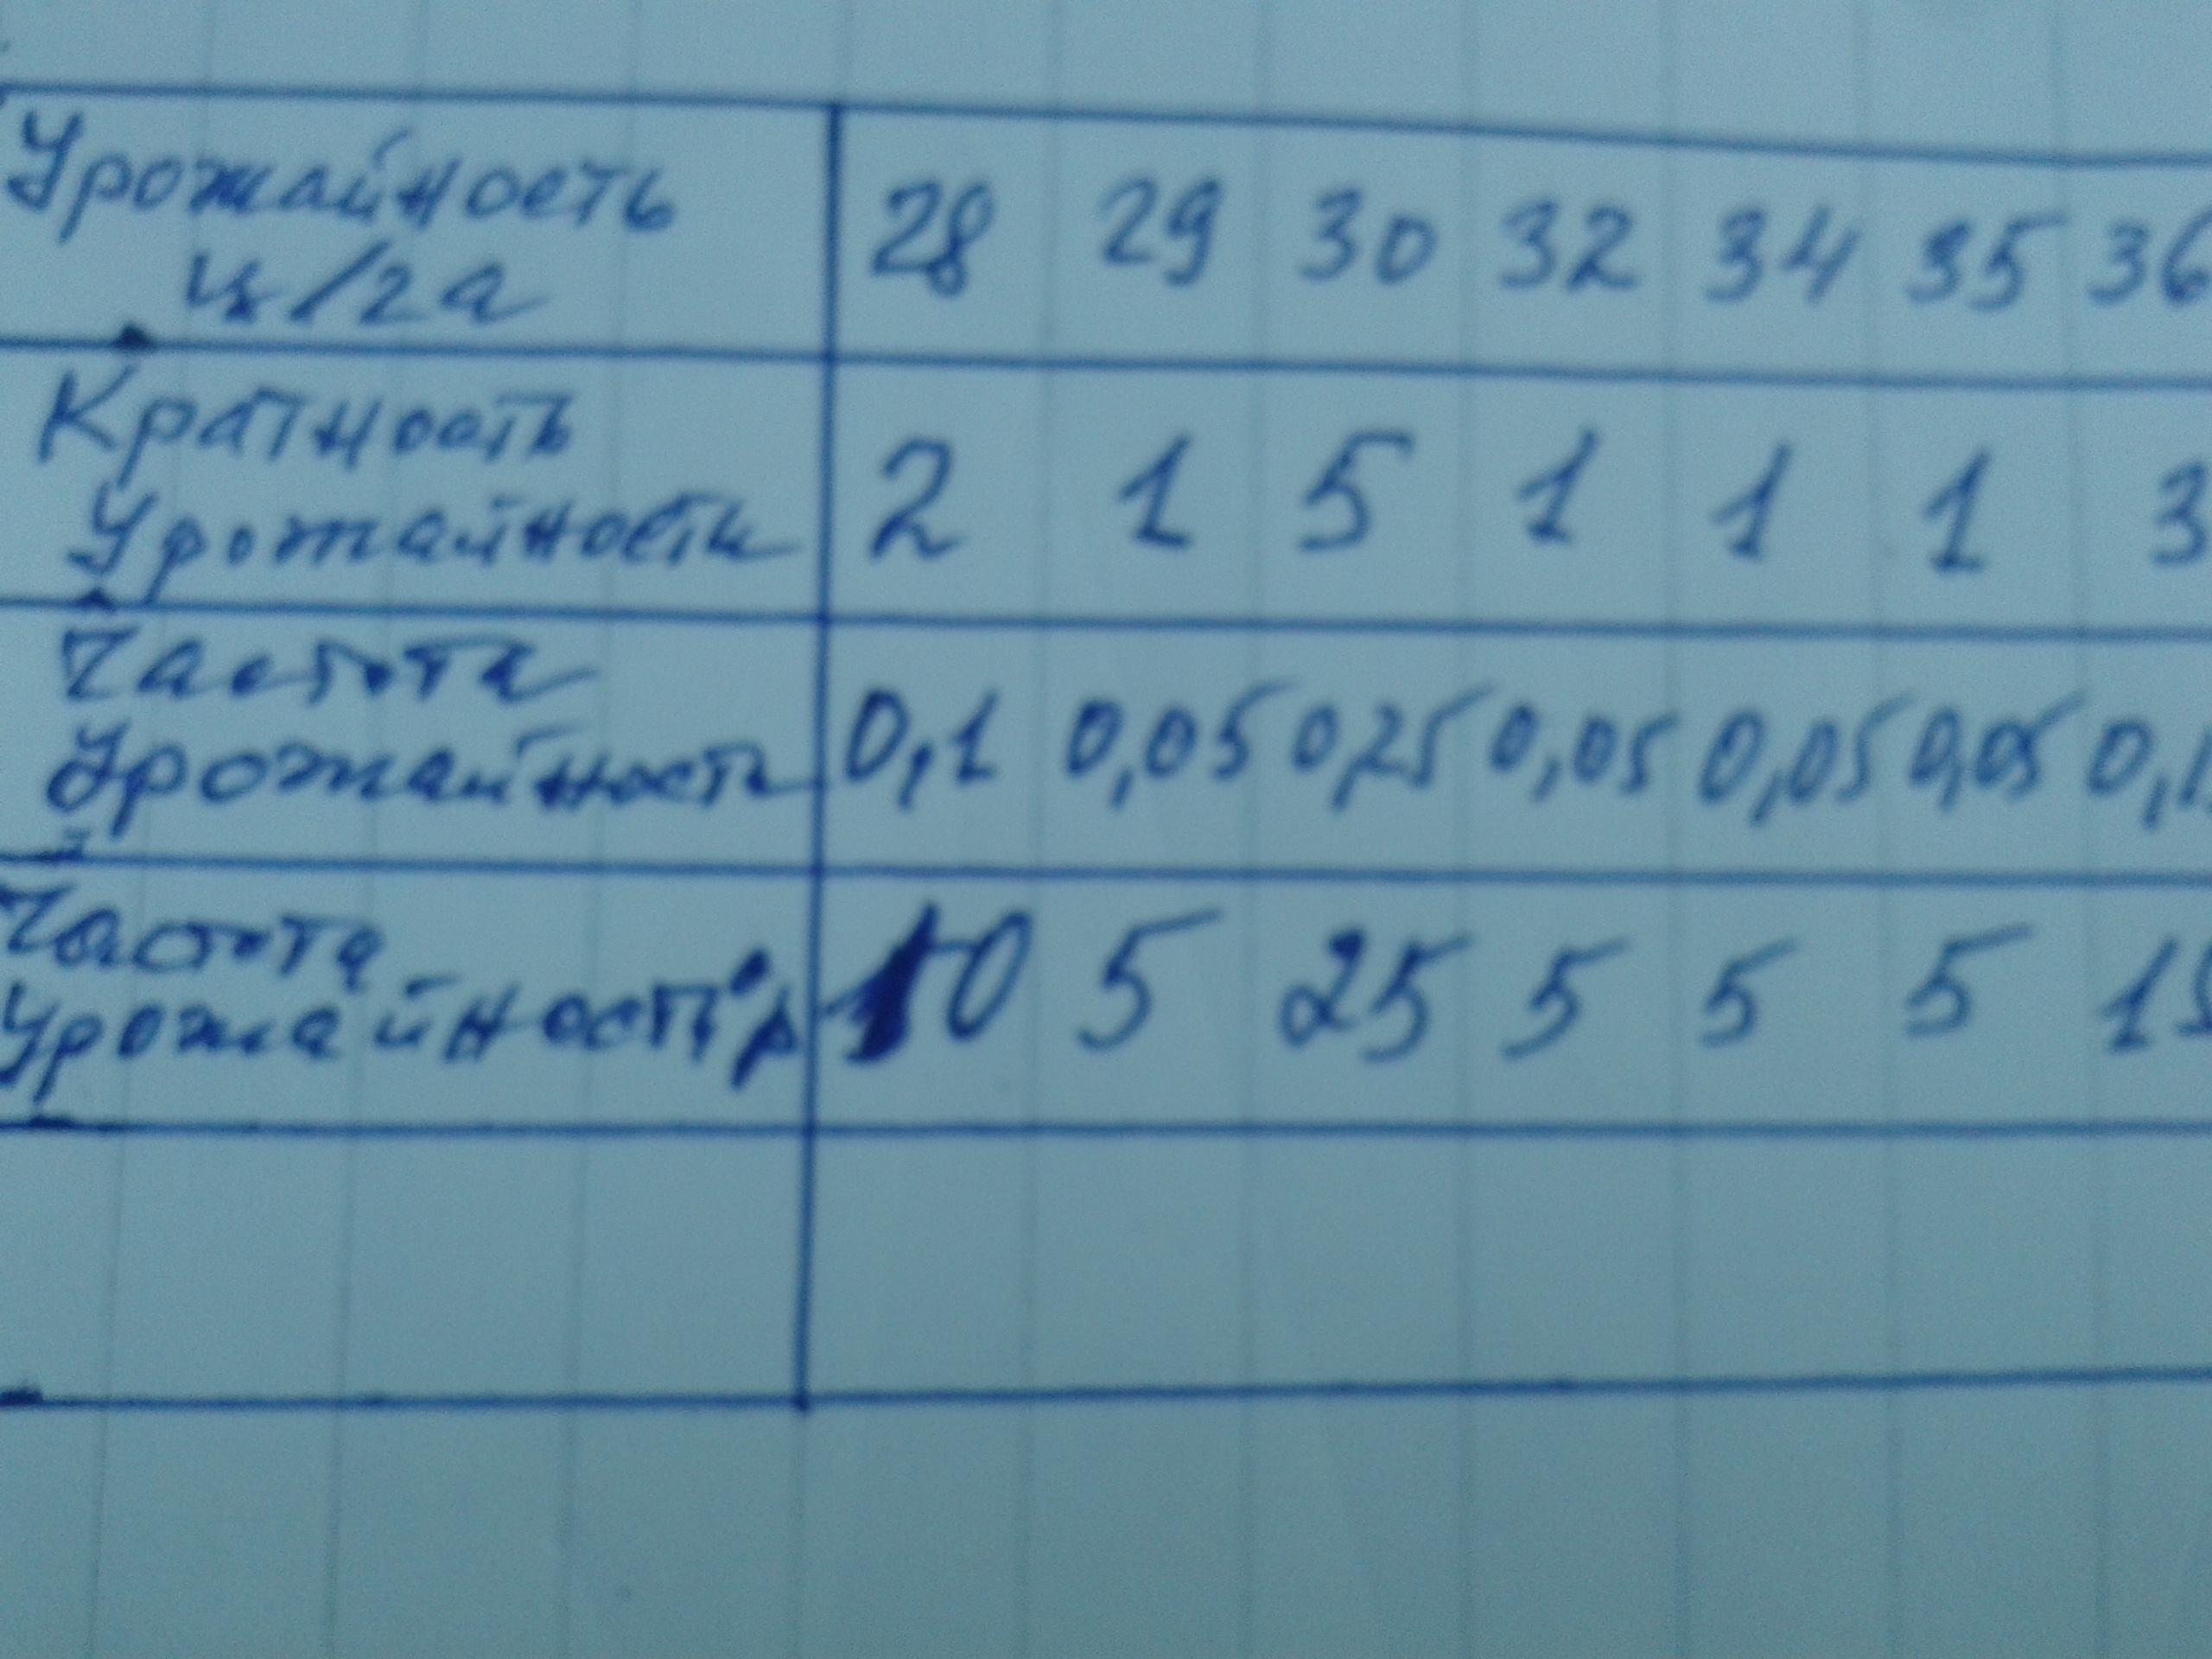 Урожайность 28 29 30 32 34 35 36
ц/га
Кратность
Урожайности 2 1 5 1 1 1 3
Частота
Урожайности 0,1 0,05 0,25 0,05 0,05 0,05 0,1
Частота
Урожайности% 10 5 25 5 5 5 15